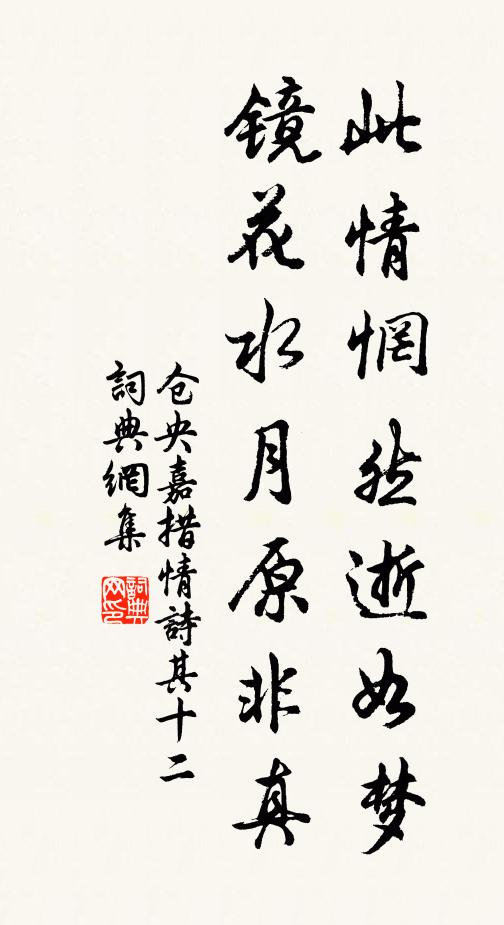 此情惘然逝如梦
镜花水月原非真
仓央嘉措情詩其十二
詞典網集
詞典网印